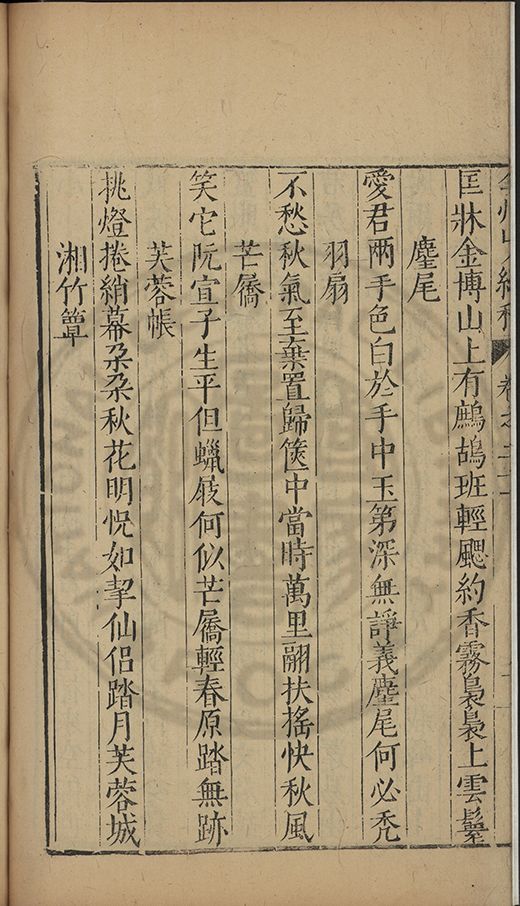 匡牀金博山上有鷓鴣班輕颸約香霧裊裊上雲鬟
麈尾
愛君兩手色白於手中玉第深無諍義麈尾何必禿
羽扇
不愁秋氣至棄置歸篋中當時萬里翮扶搖快秋風
芒屩
笑它阮宣子生平但蠟屐何似芒屩輕春原踏無跡
芙蓉帳
挑燈捲綃幕朶朶秋花明恍如挐仙侶踏月芙蓉城
湘竹簟